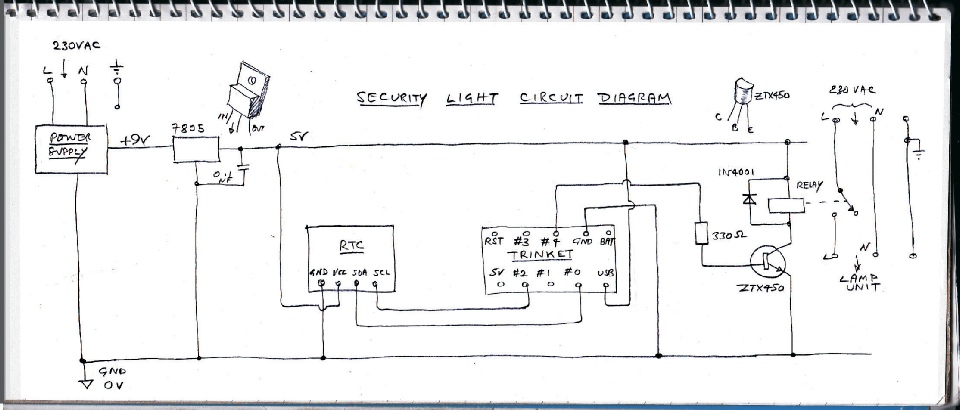 SECURITY LIGHT CIRCUIT DIAGRAM
230VAC
L N
POWER
SUPPLY
+9V
7805
IN OUT
5V
RTC
GND VCC SDA SCL
RST #3 #4 GND BAT
TRINKET
5V #2 #1 #0 USB
330Ω
1N4001
RELAY
ZTX450
C B E
ZTX450
230 VAC
L N
L N
LAMP
UNIT
GND
0V